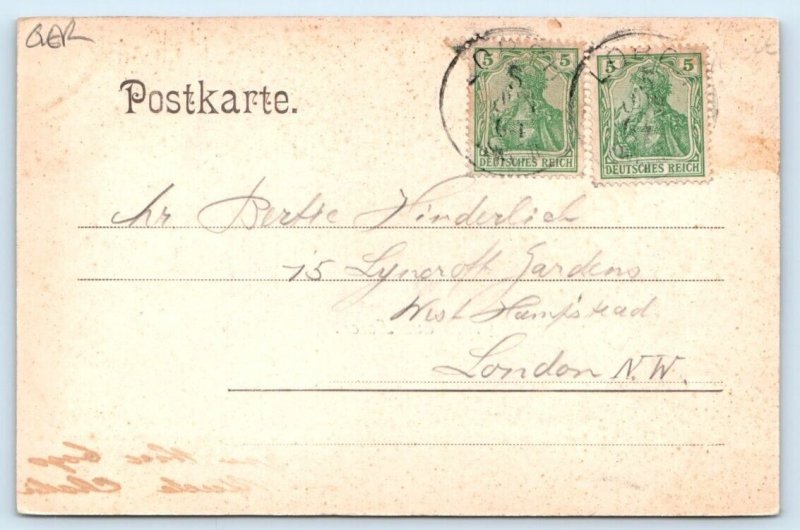 GER
Postkarte.
5 5
DEUTSCHES REICH
5 5
DEUTSCHES REICH
Mr Bertie Hinderlich
15 Lyncroft Gardens
West Hampstead
London N.W.